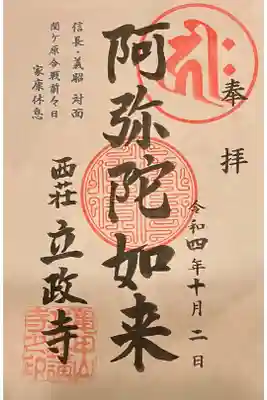 奉拝
令和四年十月二日
阿弥陀如来
西荘 立政寺
信長・義昭 対面
関ケ原合戦前々日
家康休息